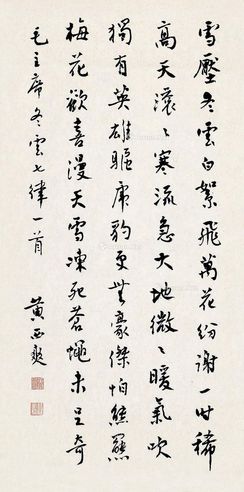 雪壓冬雲白絮飛萬花紛謝一时稀
高天滾〻寒流急大地微〻暖氣吹
獨有英雄驅虎豹更無豪傑怕熊羆
梅花歡喜漫天雪凍死蒼蠅未足奇
毛主席冬雲七律一首
黄西爽